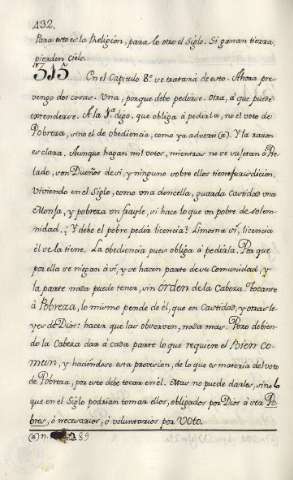 132.
Para esto es la Religion, para lo otro el Siglo. Si ganan tierra,
pierden Cielo.
315 En el Capitulo 8º se tratará de esto. Ahora pre-
vengo dos cosas. Una, porque debe pedirse. Otra, á que puede
extenderse. A la 1ª digo, que obliga á pedirla, no el voto de
Pobreza, sino el de obediencia, como ya advertí (a). Y la razon
es clara. Aunque hagan mil votos, mientras no se sujetan á Pre-
lado, son Dueños de sí, y ninguno sobre ellos tiene jurisdiccion.
Viviendo en el Siglo, como una doncella, guarda Castidad una
Monja, y pobreza un frayle, si hace lo que un pobre de solem-
nidad. ¿Y debe el pobre pedir licencia? Limosna sí, licencia
él se la tiene. La obediencia pues obliga á pedirla. Por que
por ella se niegan á sí, y se hacen parte de su Comunidad, y
la parte nada puede tener, sin orden de la Cabeza. Tocante
á Pobreza, lo mismo pende de él, que en Castidad, y otras le-
yes de Dios: hacer que las observen, nada mas. Pero debien-
do la Cabeza dar á cada parte lo que requiere el Bien co-
mun, y haciendose esta provision, de lo que es materia del voto
de Pobreza, por esto debe tocar en él. Mas no puede darles, sino lo
que en el Siglo podrian tomar ellos, obligados por Dios á ser Po-
bres, ó necesarios, ó voluntarios por Voto.
(a) n. 89